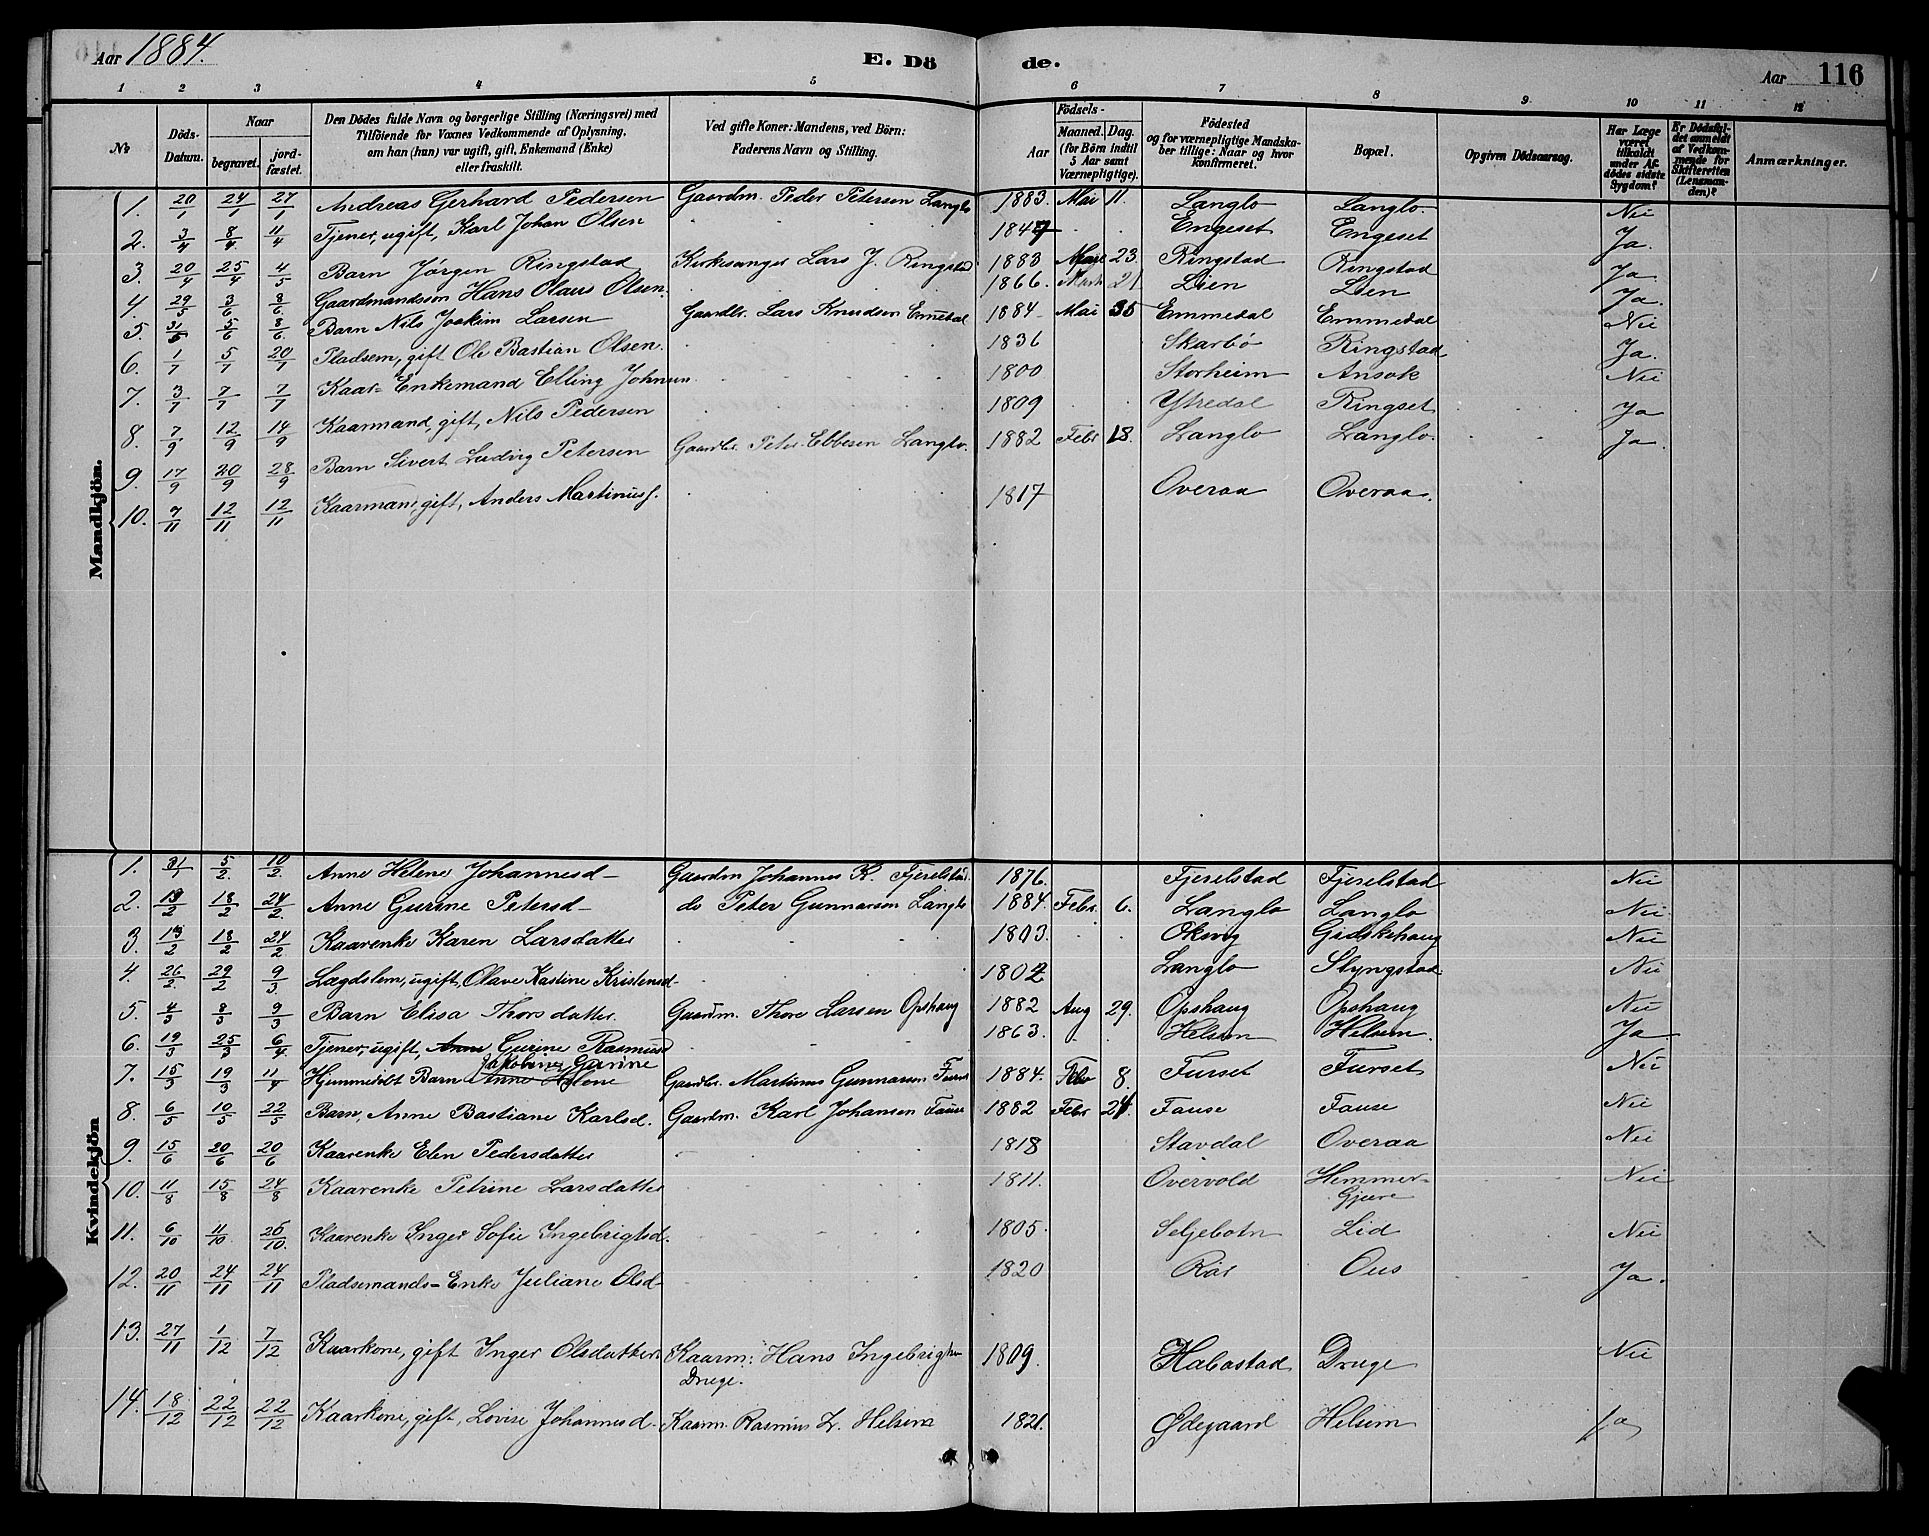 Aar 1884.
E. Döde.
Aar 116
1 2 3 4 5 6 7 8 9 10 11 12
№
Döds-Datum.
Naar
begravet.
jordfæstet.
Den Dödes fulde Navn og borgerlige Stilling (Næringsvei) med
Tilföiende for Voxnes Vedkommende af Oplysning,
om han (hun) var ugift, gift, Enkemand (Enke)
eller fraskilt.
Ved gifte Koner: Mandens, ved Börn:
Faderens Navn og Stilling.
Födsels-
Aar
Maaned. Dag.
(for Börn indtil
5 Aar samt
Værnepligtige).
Födested
og for værnepligtige Mandskaber tillige: Naar og hvor
konfirmeret.
Bopæl.
Opgiven Dödsaarsag.
Har Læge været tilkaldt under Afdödes sidste Sygdom?
Er Dödsfaldet anmeldt af Vedkommende for Skifteretten (Lensmanden)?
Anmærkninger.
Mandkjön.
1. 20/1 24/1 27/1 Andreas Gerhard Pedersen Gaardm. Peder Petersen Langlo 1883. Mai 11. Langlo Langlo. Nei
2. 3/4 8/4 11/4 Tjener, ugift, Karl Johan Olsen 1847 Engeset Engeset Ja.
3. 20/4 25/4 4/5 Barn Jørgen Ringstad Kirkesanger Lars J. Ringstad 1883 23. Ringstad Ringstad Ja
4. 29/5 3/6 8/6 Gaardmandssøn Hans Olaus Olsen. 1866. Marts 21 Lien Lien Ja.
5. 31/5 5/6 8/6 Barn Nils Joakim Larsen Gaardbr. Lars Knudsen Emedal 1884 Mai Emmedal Emmedal Nei
6. 1/7 5/7 20/7 Pladsem, gift Ole Bastian Olsen. 1836 Skarbø Ringstad Ja.
7. 3/7 7/7 7/7 Kaar-Enkemand Elling Johnsen 1800 Storheim Ansok Nei
8. 7/9 12/9 14/9 Kaarmand, gift, Nils Pedersen 1809 Ytredal Ringset Ja
9. 17/9 20/9 28/9 Barn Sivert Ludvig Petersen Gaardbr. Peter Ebbesen Langlo. 1882 Febr 18. Langlo Langlo. Ja.
10. 7/11 12/11 12/11 Kaarmand, gift, Anders Martinuss. 1817 Overaa Overaa.
Kvindekjön
1. 31/1 5/2. 10/2. Anne Helene Johannesd- Gaardm Johannes K. Fjerelstad. 1876. Fjerelstad Fjerelstad Nei
2. 13/2 18/2 24/2. Anne Gurine Petersd- do Peter Gunnarson Langlo 1884. Febr. 6. Langlo Langlo Nei
3. 13/2 18/2 24/2 Kaarenke Karen Larsdatter 1803. Oksvig Gidskehaug Nei
4. 26/2. 29/2 9/3 Lægdslem, ugift, Olave Kastine Kristensd- 1802 Langlo Slyngstad Nei
5. 4/3 8/3 9/3 Barn Elisa Thorsdatter. Gaardm. Thore Larsen Opshaug 1882 Aug 29. Opshaug Opshaug Nei
6. 19/3 25/3 6/4 Tjener, ugift, Anne Gurine Rasmusd 1863. Helsem Helsem. Ja
7. 15/3 19/3 11/4 Hjemmedøbt Barn Anne Helene Jakobine Gurine Gaardbr. Martinus Gunnarson Furset 1884. Febr 8. Furset Furset Nei
8. 6/5 10/5 22/5 Barn, Anne Bastiane Karlsd. Gaardm. Karl Johansen Fause 1882 Febr 24. Fause Fause Nei
9. 15/6 20/6 20/6 Kaarenke Elen Pedersdatter 1818 Stavdal Overaa Nei
10. 11/8 15/8 24/8 Kaarenke Petrine Larsdatter 1811. Overvold Hemmer-Gjære Nei
11. 6/10 11/10 26/10. Kaarenke Inger Sofie Ingebrigtsd. 1805. Seljebotn Lid Nei
12. 20/11 24/11 24/11 Pladsemands-Enke Juliane Olsd- 1820 Rør Ous Ja.
13. 27/11 1/12 7/12 Kaarkone, gift Inger Olsdatter. Kaarm: Hans Ingebrigtsen Druge. 1809. Habostad Druge Nei
14. 18/12 22/12 22/12 Kaarkone, gift, Lovise Johannesd. Kaarm. Rasmus L. Helsem 1821. Ødegaard Helsem Ja